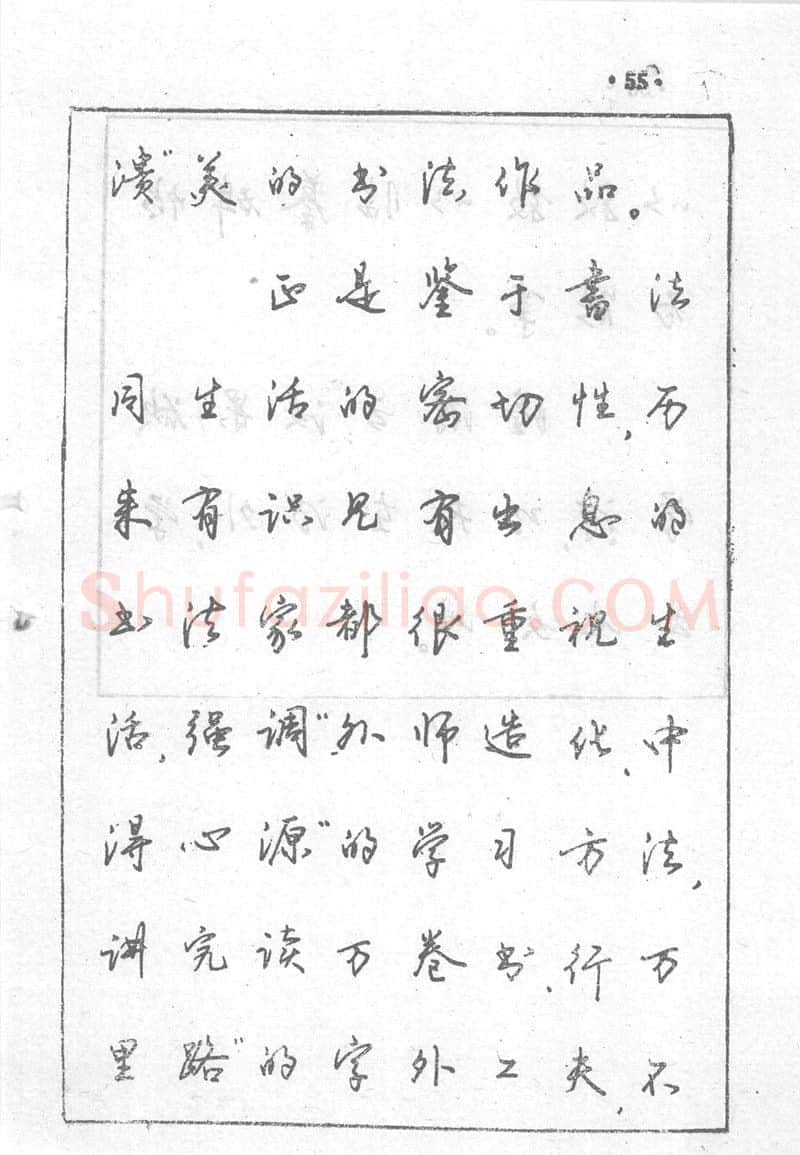 ·55·
溃”美的书法作品。
正是鉴于書法
同生活的密切性,历
来有识见有出息的
书法家都很重视生
活,强调“外师造化,中
得心源”的学习方法,
讲究读万卷书,行万
里路”的字外工夫,不
Shufaziliao.COM